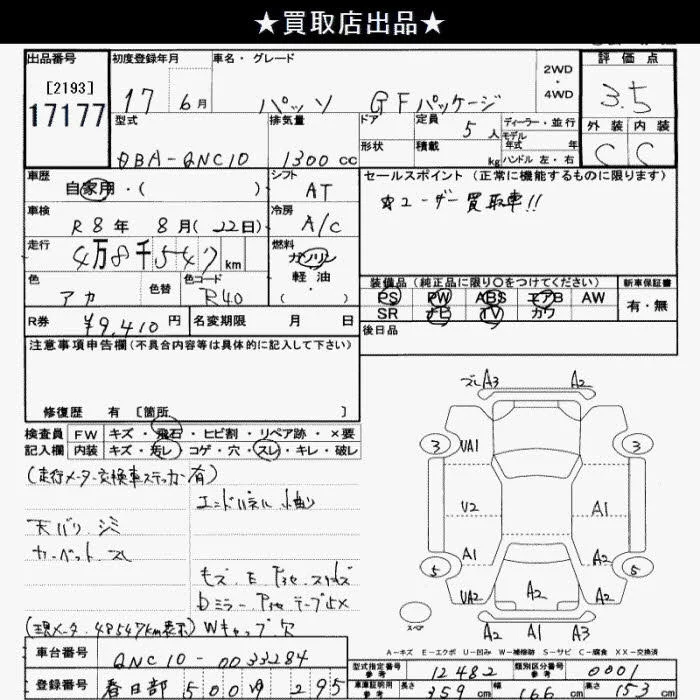 ★買取店出品★
出品番号 初度登録年月 車名・グレード 2WD・4WD 評価点
[2193]
17177
17年 6月 パッソ GFパッケージ 3.5
型式 排気量 ドア 定員 5人 ディーラー・並行
モデル年式 年
外装 内装
DBA-QNC10 1300cc 形状 積載 kg ハンドル 左・右 C C
車歴 シフト セールスポイント(正常に機能するものに限ります)
自家用・( ) AT ☆ユーザー買取車!!
車検 冷房
R8年 8月(22日) A/C
走行 燃料
4万8千547km ガソリン
軽油・
( )
色 色替 色コード 装備品(純正品に限り○をつけてください) 新車保証書
アカ R40 PS PW ABS エアB AW 有・無
SR ナビ TV カワ
R券 ¥9,410円 名変期限 月 日 後日品
注意事項申告欄(不具合内容等は具体的に記入して下さい)
修復歴 有 [箇所 ]
検査員 FW キズ・飛石・ヒビ割・リペア跡・×要
記入欄 内装 キズ・汚レ・コゲ・穴・スレ・キレ・破レ
(走行メーター交換車ステッカー有)
エンドパネル 小曲り
天バリ シミ
カーペット スレ
キズ・E
(現メータ 48547km表示) Wキャップ欠
ズレ A3 A2
3 3
VA1
V2 A1
A1 A2
5 5
VA2 A2 A2
スペア A2 A1 A3
A-キズ E-エクボ U-凹み W-補修跡 S-サビ C-腐食 XX-交換済
車台番号 QNC10-0033284
登録番号 春日部 500 ゆ 295
型式指定番号 参考 12482 類別区分番号 参考 0001
車庫証明用 参考 長さ 359cm 幅 166cm 高さ 153cm